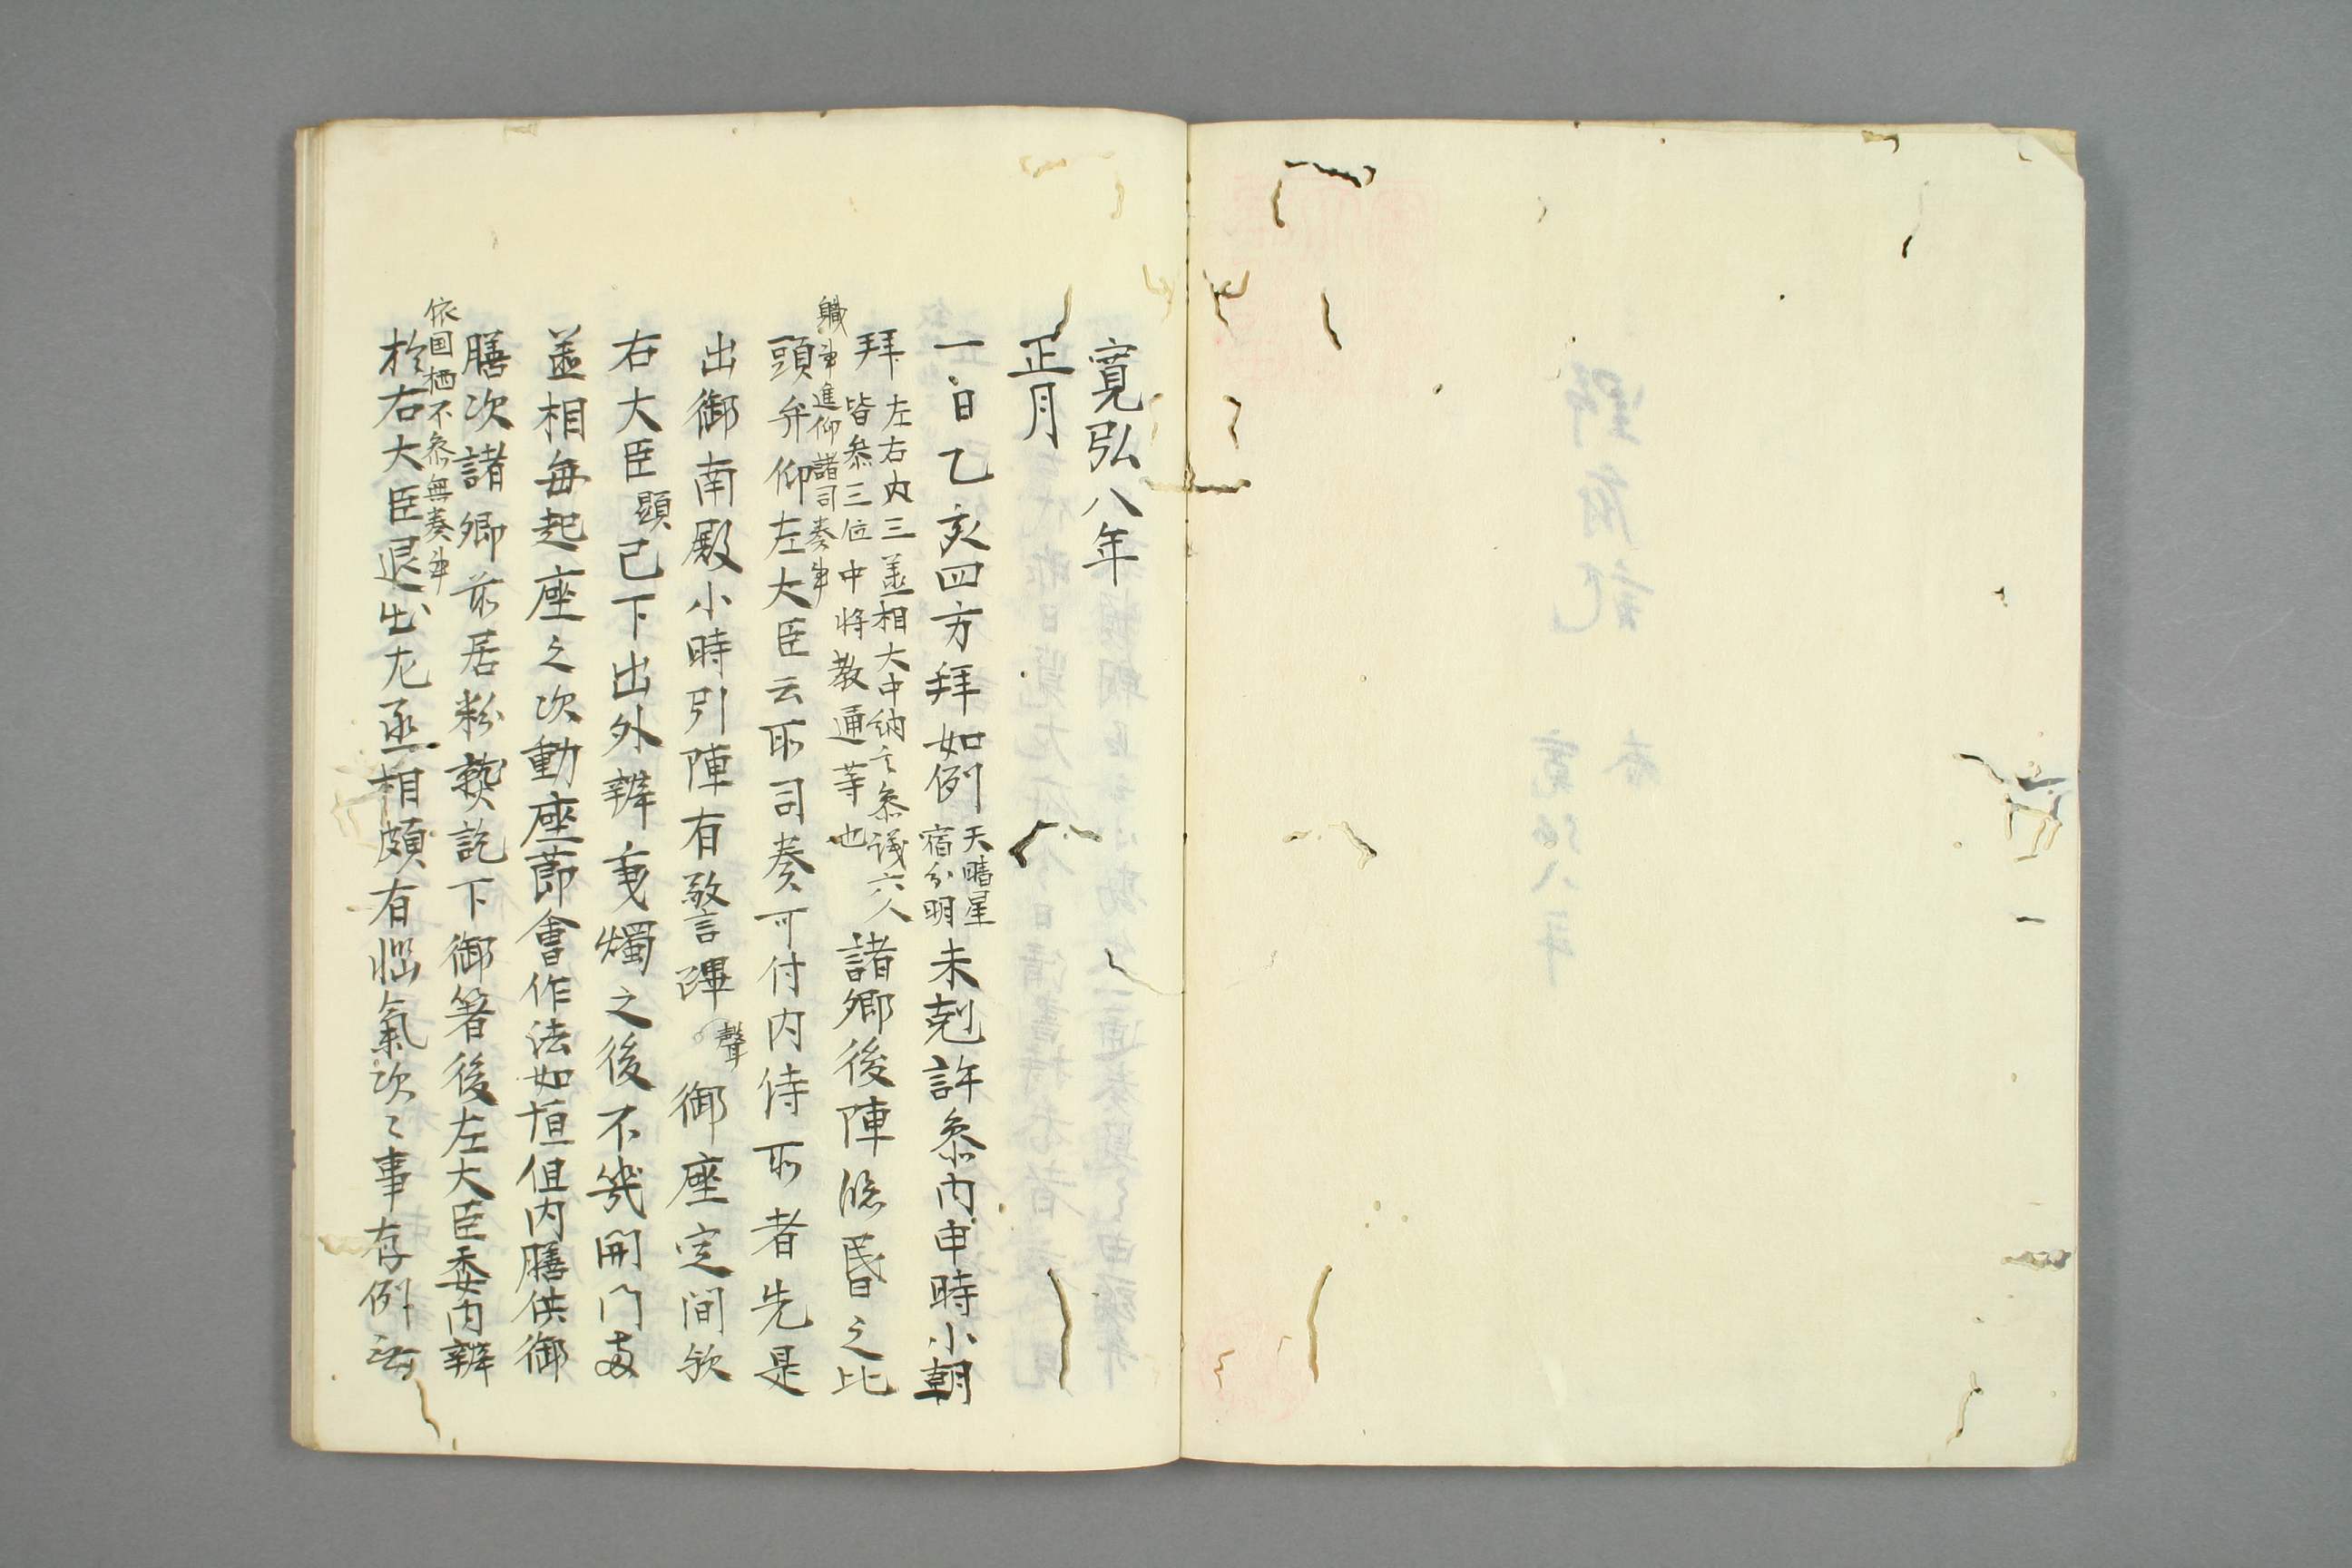 寛弘八年
正月
一日乙亥四方拜如例
天晴星
宿分明
未剋許叅内申時小朝
拜
左右内三丞相大中納言叅議六人
皆叅三位中将教通等也
諸卿後陣臨昏之比
職事進仰諸司奏事
頭弁仰左大臣云所司奏可付内侍所者先是
出御南殿小時引陣有警蹕
聲
御座定間欤
右大臣
顕
已下出外辨秉燭之後不幾開門
丞相毎起座之次動座節會作法如恒但内膳供御
膳次諸卿前居粉熟訖下御箸後左大臣委内辨
依国栖不叅無奏事
於右大臣退出左丞相頗有氣次々事存例